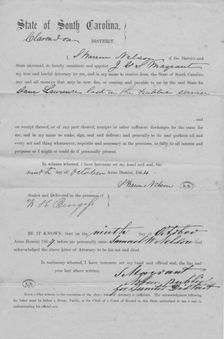 State of South Carolina,
Clarendon
DISTRICT.
I, Warren Nelson of the District and
State aforesaid, do hereby constitute and appoint J. &. S. Maynard
my true and lawful Attorney for me, and in my name to receive from the State of South Carolina
any and all money that may be now due, or coming and payable to me by the said State for
Lawrence lost in the public service
on receipt thereof, or of any part thereof, receipts or other sufficient discharges for the same for
me, and in my name to make, sign, seal and deliver; and generally to do and perform all and
every act and thing whatsoever, requisite and necessary in the premises, as fully to all intents and
purposes as I might or could do if personally present.
In witness whereof, I have hereunto set my hand and seal, the
ninth day of October Anno Domini, 1864
Warren Nelson
Sealed and Delivered in the presence of
BE IT KNOWN, that on the ninth day of October
Anno Domini 186 before me personally came Samuel W. Nelson and
acknowledged the above letter of Attorney to be his act and deed.
In testimony whereof, I have hereunto set my hand and seal, the day and year
last above written.
Notary Public
for Sumter District